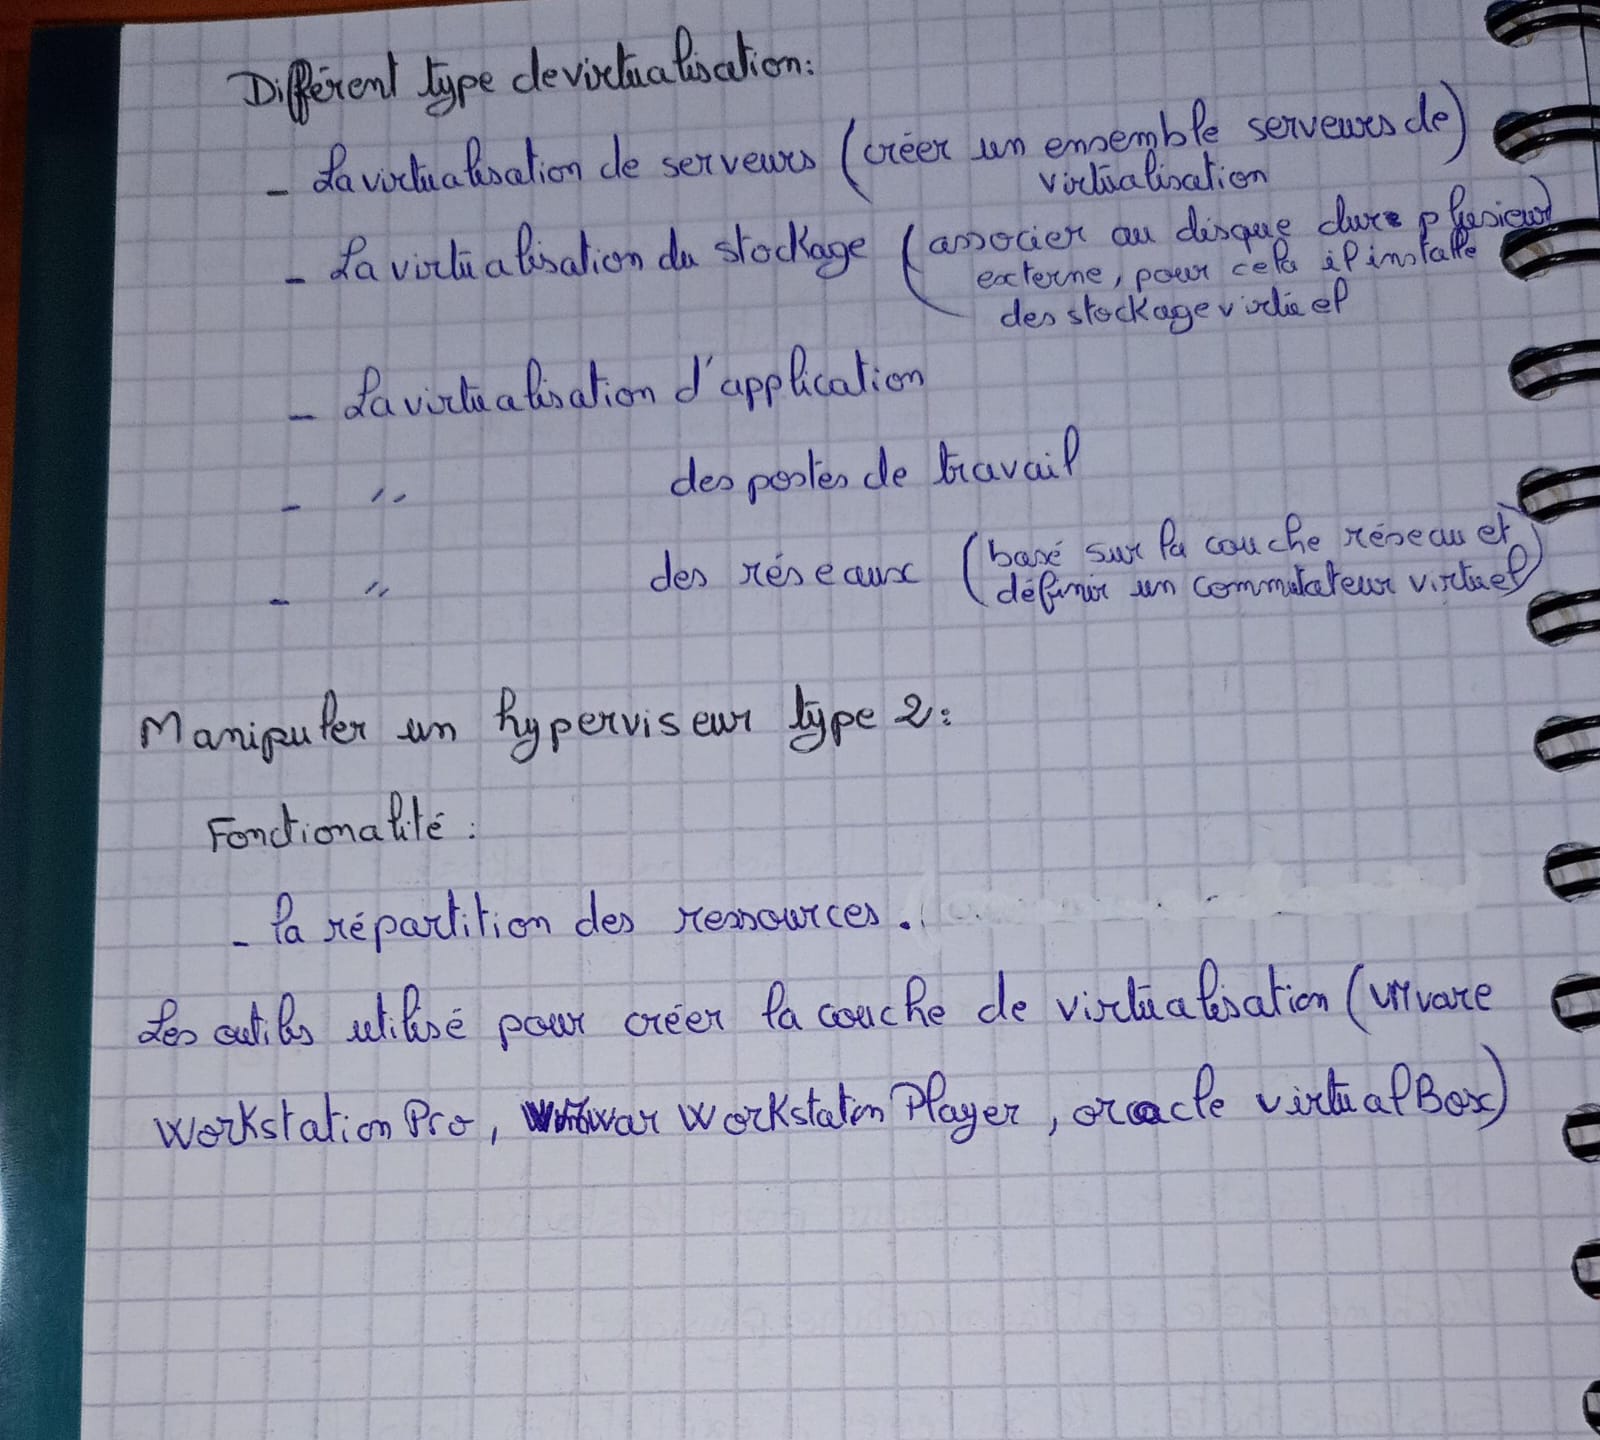 Différent type de virtualisation:
- La virtualisation de serveurs (créer un ensemble serveurs de)
virtualisation
- La virtualisation du stockage (associer au disque dure plusieur)
externe, pour cela il installe
des stockage virtuel
- La virtualisation d'application
- " des postes de travail
- " des réseaux (basé sur la couche réseau et)
définir un commutateur virtuel
Manipuler un hyperviseur type 2:
Fonctionalité :
- la répartition des ressources.
Les outils utilisé pour créer la couche de virtualisation (VMvare
Workstation Pro, workstation Player, oracle virtualBox)